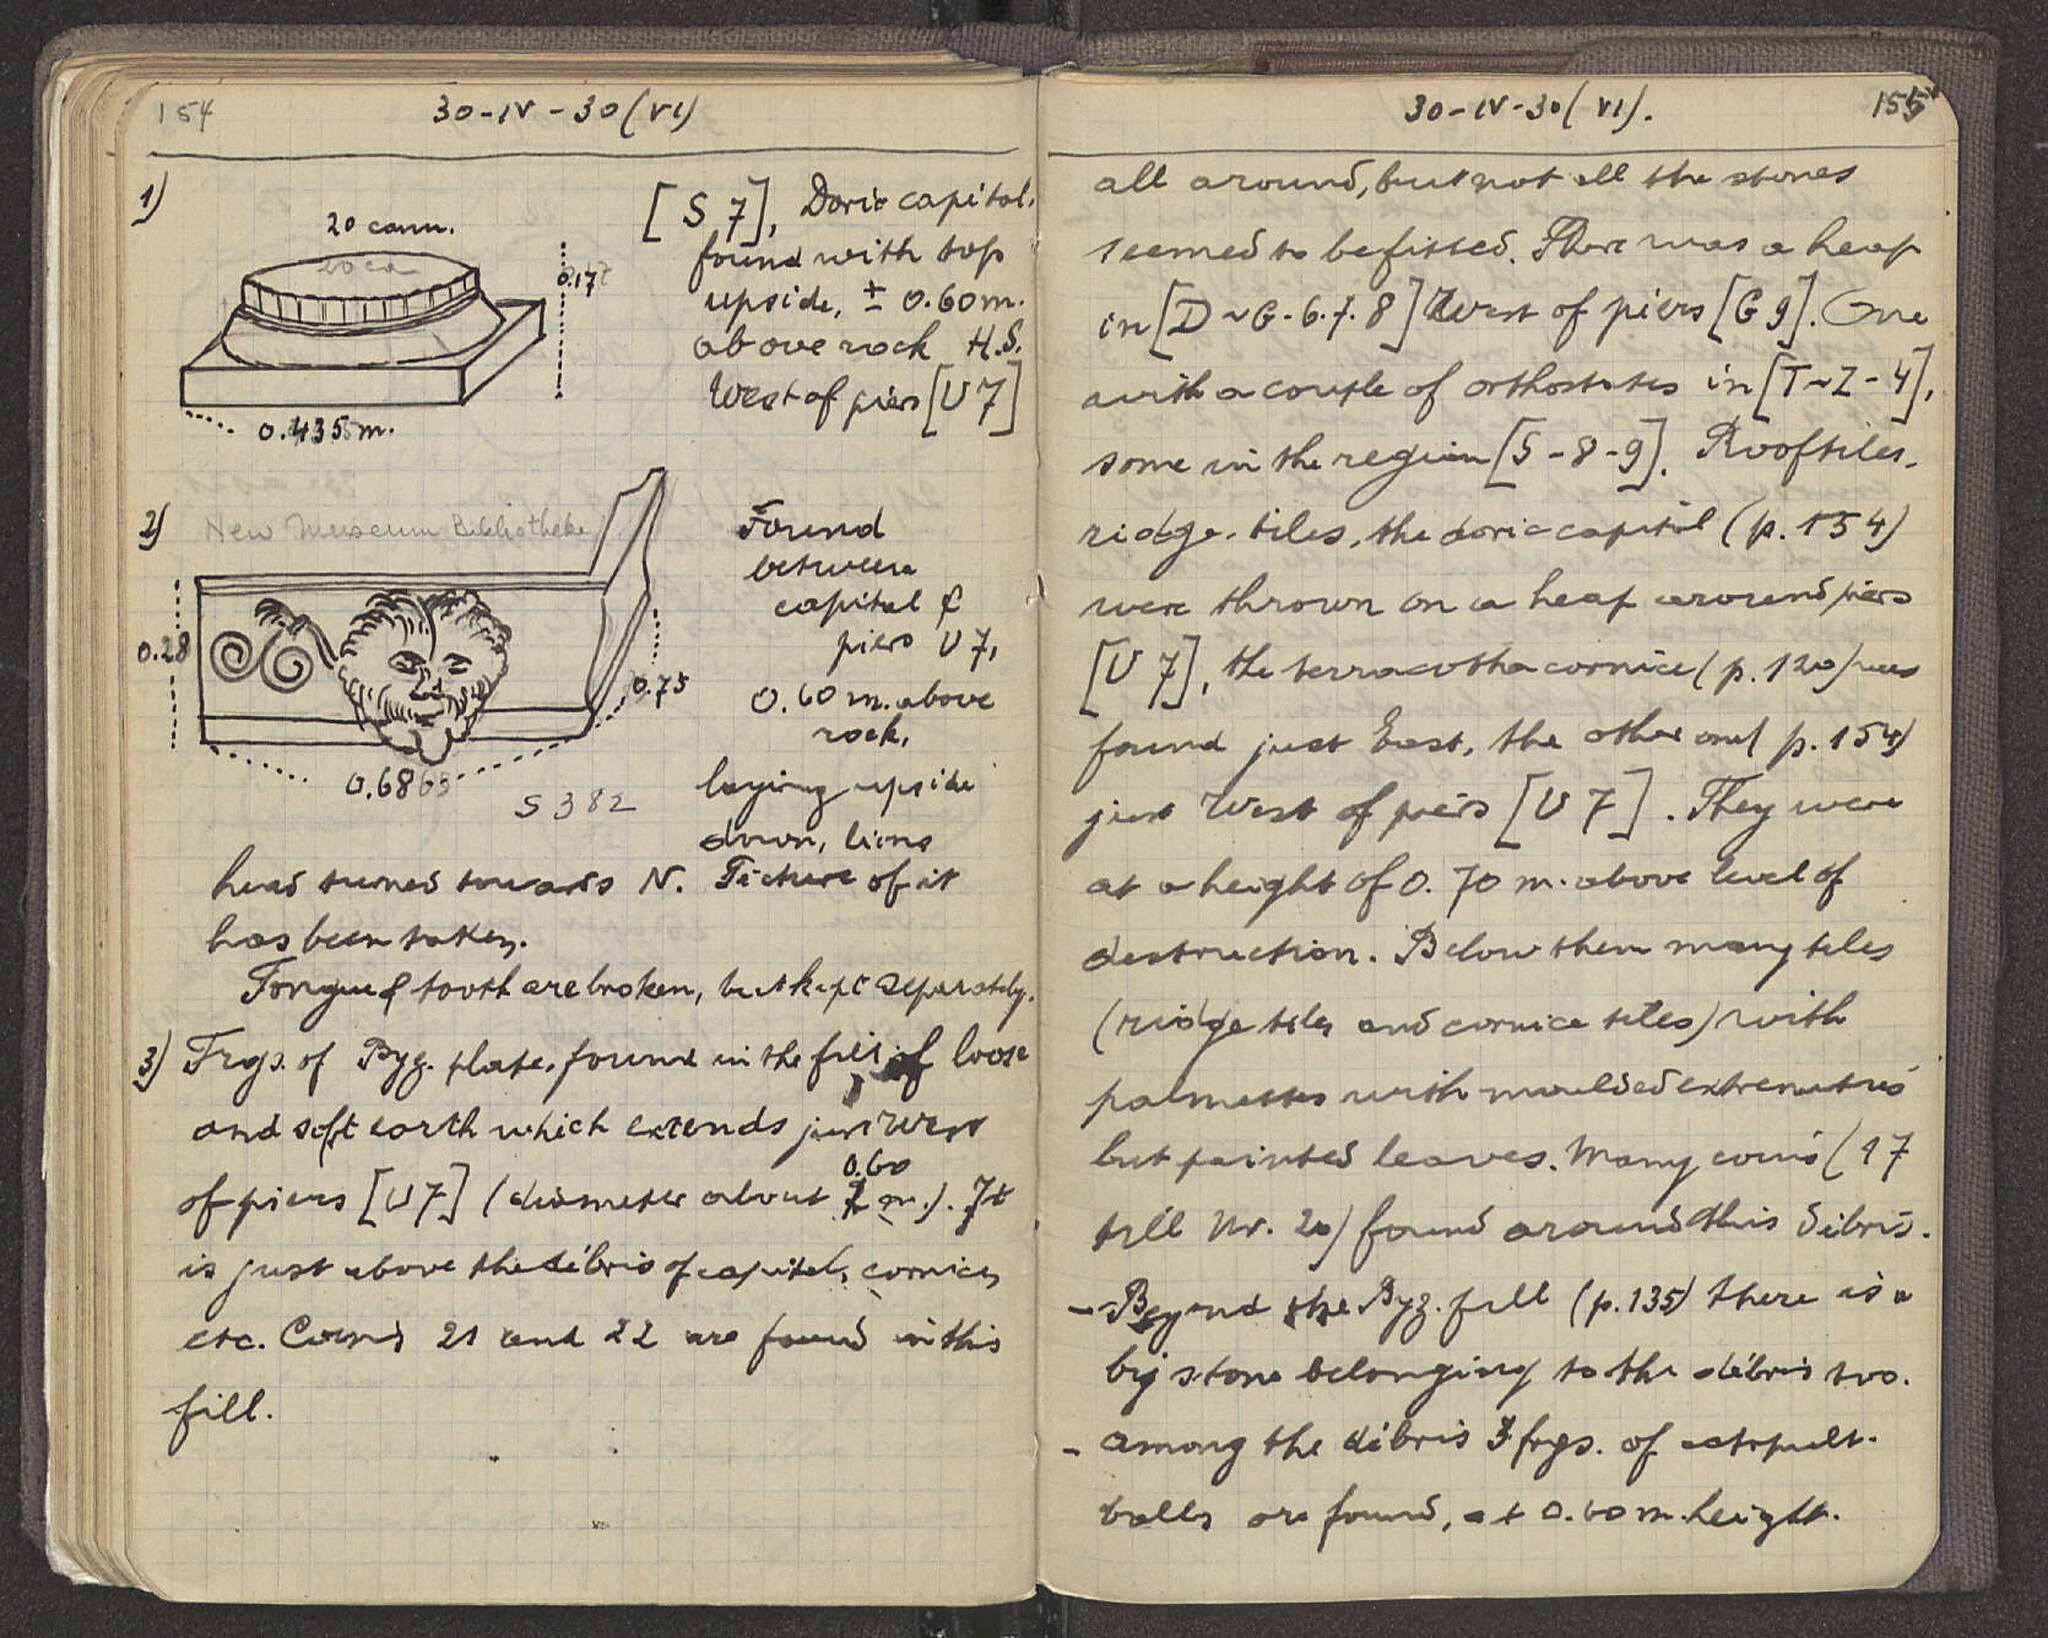 154
30-IV-30 (VI)
1)
20 cann.
20 ca
0.17
0.435 m.
[S 7], Doric capital,
found with top
upside, ± 0.60 m.
above rock H.S.
West of piers [U 7]
2)
New Museum Bibliotheke
0.28
0.75
0.6865
S 382
Found
between
capital &
piers U 7,
0.60 m. above
rock,
laying upside
down, lions
head turned towards N. Picture of it
has been taken.
Tongue & tooth are broken, but kept separately.
3) Frgs. of Byz. plate, found in the fill of loose
and soft earth which extends just West
0.60
of piers [U 7] (diameter about m.). It
is just above the débris of capital, cornice,
etc. Coins 21 and 22 are found in this
fill.
30-IV-30 (VI).
155
all around, but not all the stones
seemed to be fitted. There was a heap
in [D-G-6.7.8] West of piers [G 9]. One
with a couple of orthostates in [T-Z-4],
some in the region [S-8-9]. Rooftiles,
ridge-tiles, the doric capital (p. 154)
were thrown on a heap around piers
[U 7], the terracotta cornice (p. 120) was
found just East, the other one (p. 154)
just West of piers [U 7]. They were
at a height of 0.70 m. above level of
destruction. Below them many tiles
(ridge tiles and cornice tiles) with
palmettes with moulded extremities
but painted leaves. Many coins (17
till Nr. 20) found around this débris.
- Beyond the Byz. fill (p. 135) there is a
big stone belonging to the débris too.
- among the débris 3 frgs. of catapult-
balls are found, at 0.60 m. height.